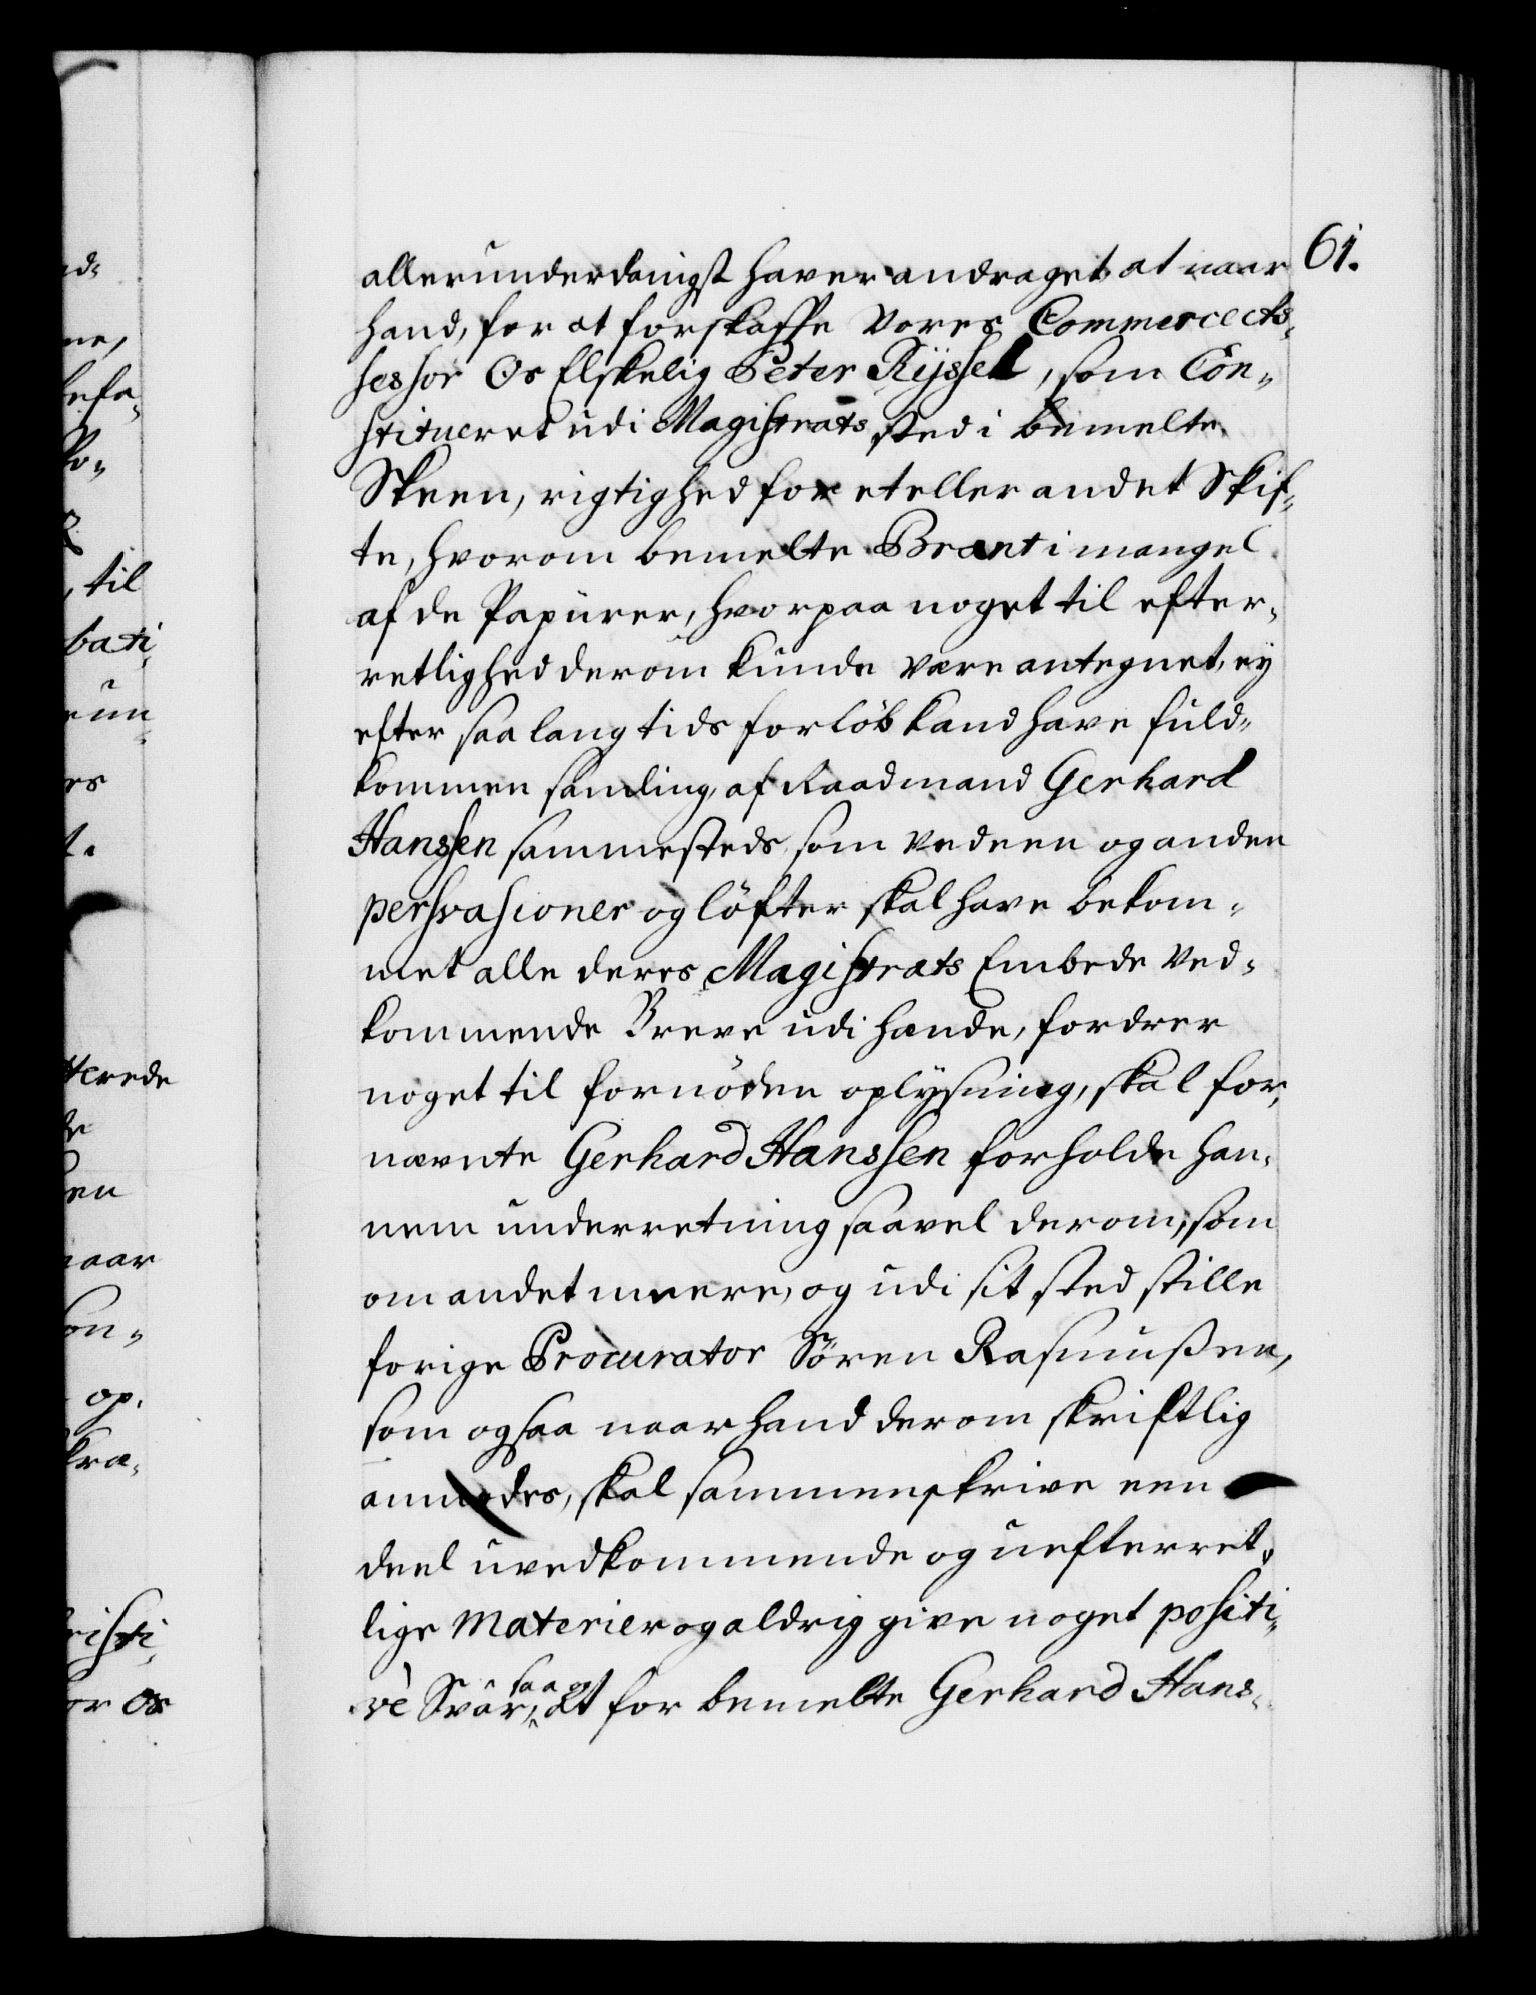 61.
allerunderdanigst haver andraget, at naar
hand, for at forskaffe Vores Commerce As„
sessor Os Elskelig Peter Rijssel, som Con„
stitueret udi Magistrats sted i bemelte
Skeen, rigtighed for et eller andet Skif„
te, hvorom bemelte Brant i mangel
af de Papiirer, hvorpaa noget til efter„
retlighed derom kunde være antegnet, ey
efter saa lang tids forløb kand have fuld„
kommen samling, af Raadmand Gerhard
Hanssen sammesteds som ved een og anden
persvasioner og løfter skal have bekom„
met alle deres Magistrats Embede ved„
kommende Breve udi hænde, fordrer
noget til fornøden oplysning, skal for„
nævnte Gerhard Hanssen forholde han„
nem underretning saavel derom, som
om andet meere, og udi sit sted stille
forige Procurator Sören Rasmußen,
som ogsaa naar hand derom skriftlig
anmodes, skal sammenskrive een
deel uvedkommende og uefterret„
lige Materier og aldrig give noget positi„
vè Svar, saa at for bemelte Gerhard Hans„
nd„
til
bati„
un„
es
terede
en
naar
on„
op„
kra„
risti„
or os